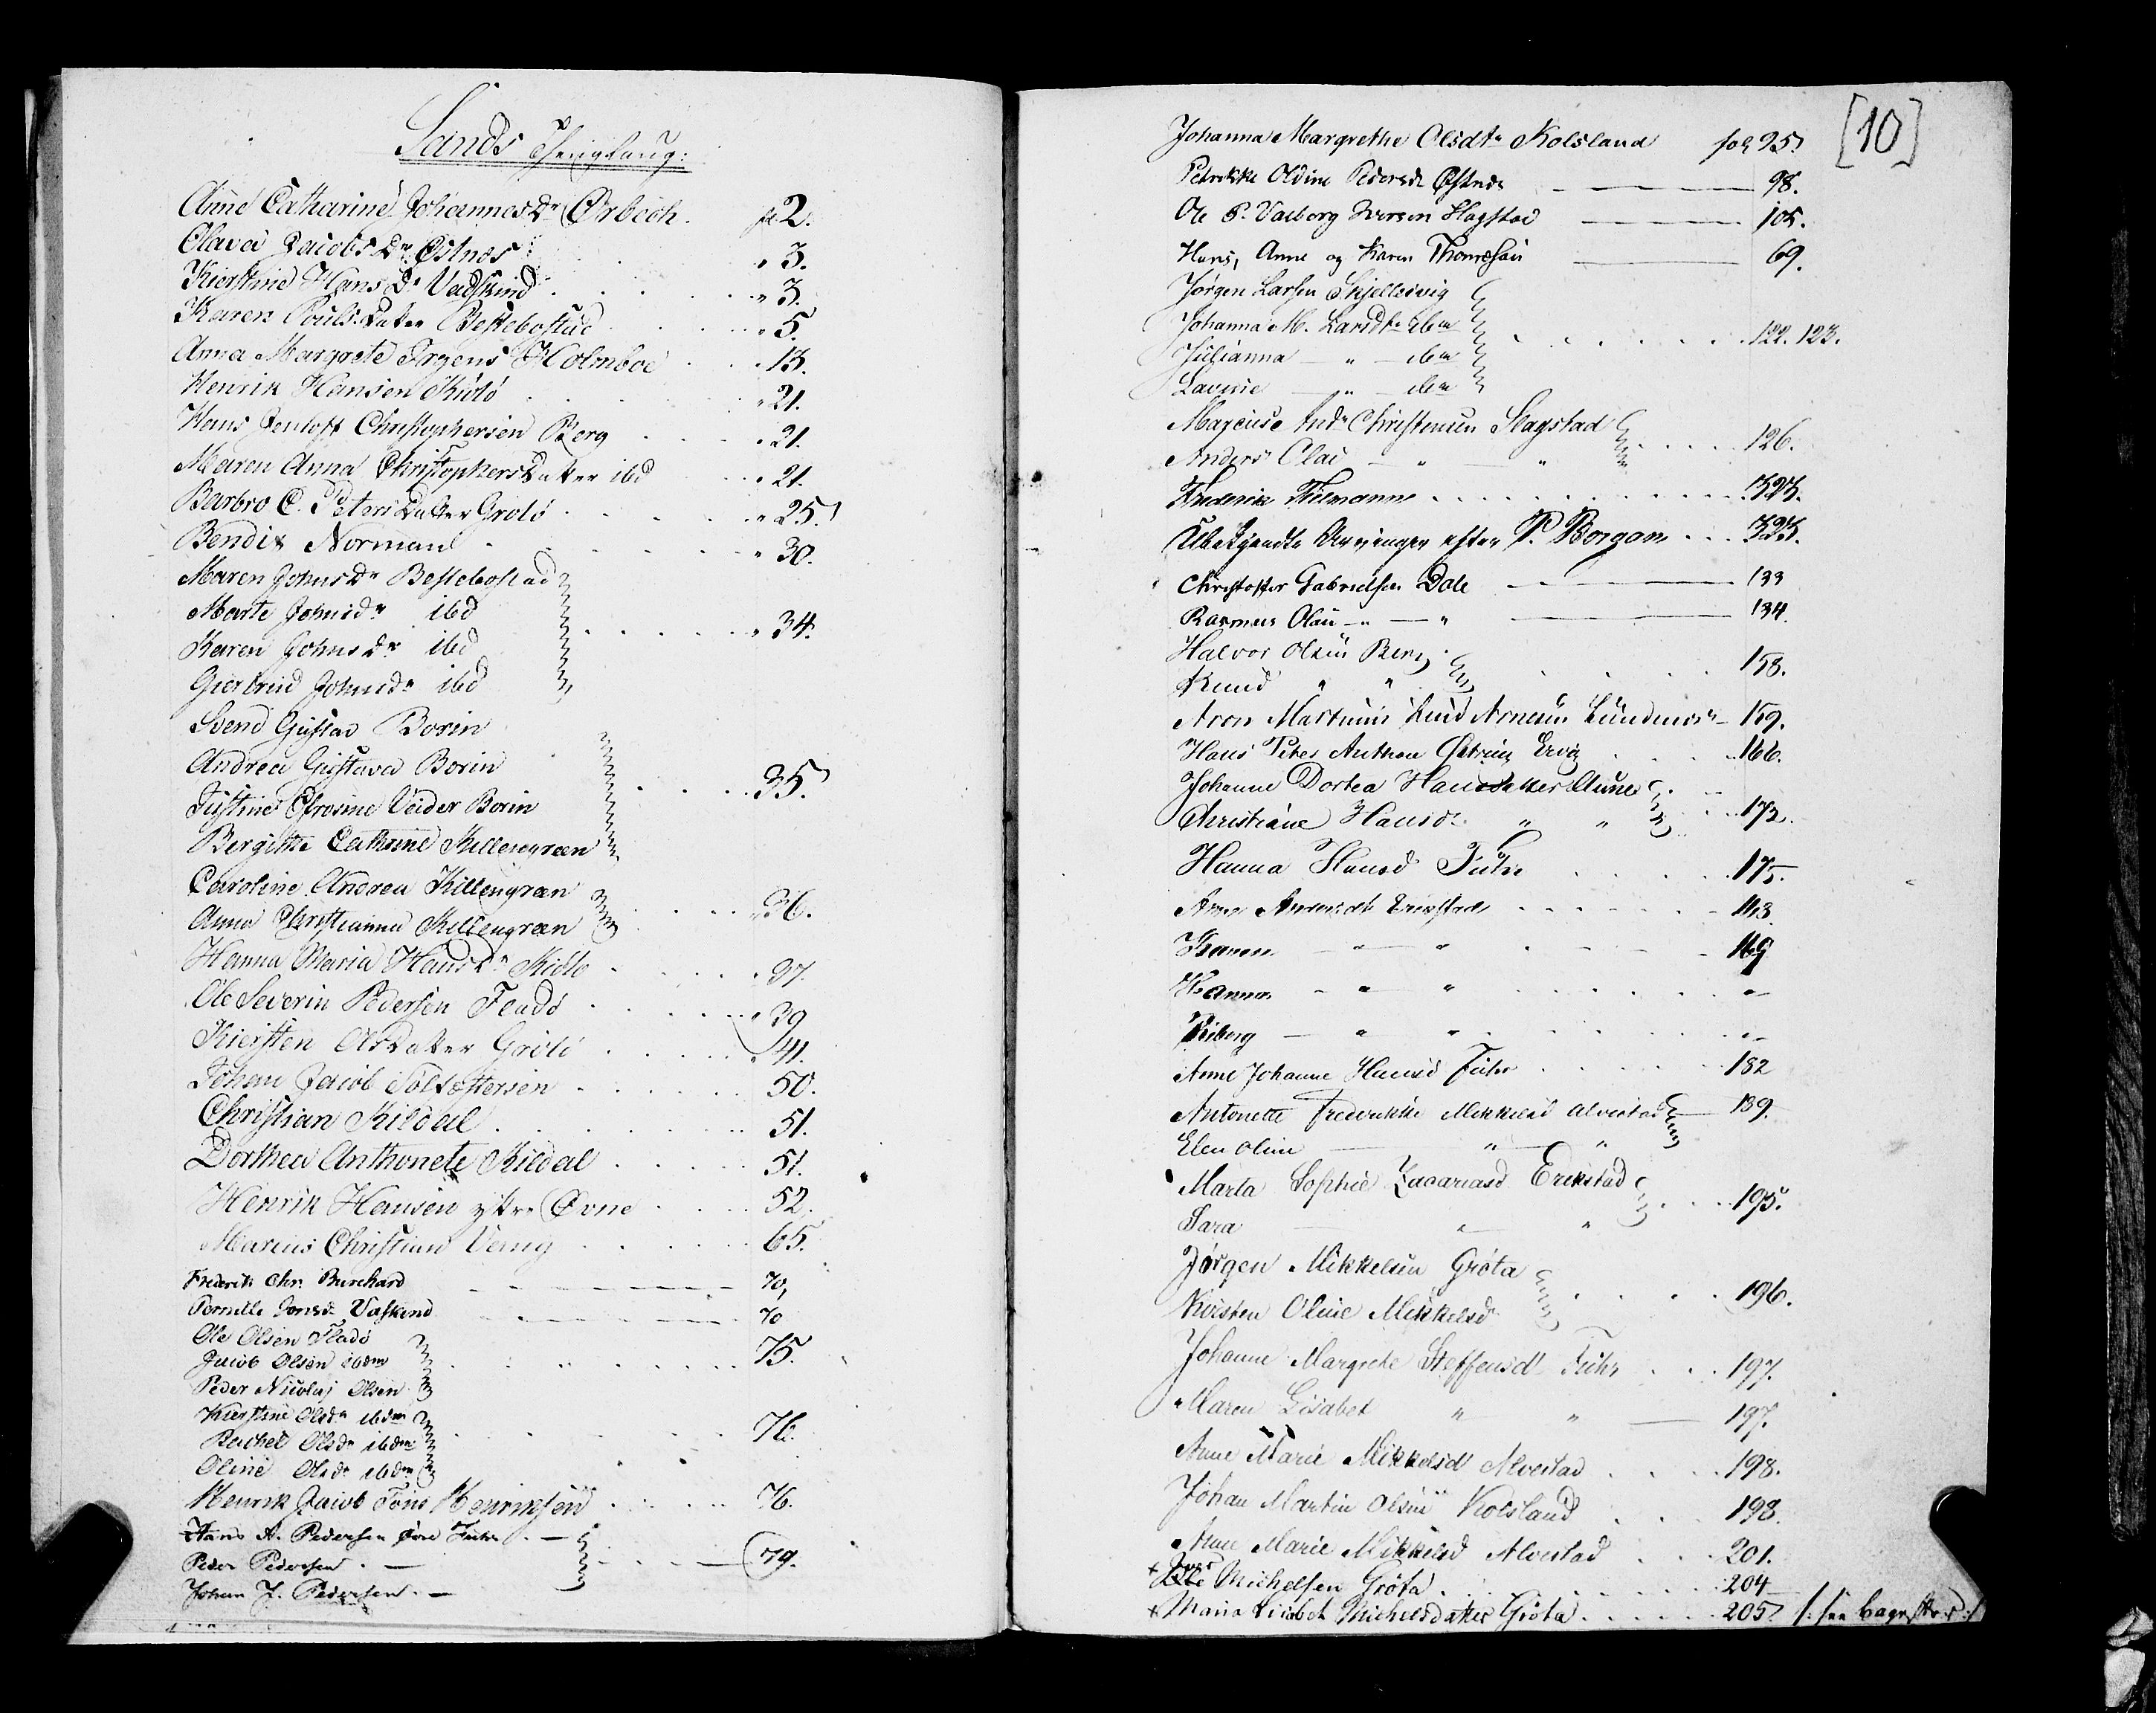 Sands Thinglaug:
Anne Catharine Johannes Dr Ørbech. fo 2.
Olava Jacobs Dr Østnes " 3.
Kierstine Hans Dr Vadskind " 3.
Karen Pouls Datter Bessebostad " 5.
Anna Margrete Irgens Holmboe " 13.
Henrik Hansen Kiölö " 21.
Hans Jentoft Christophersen Berg " 21.
Maren Anna Christophers Datter ibd " 21.
Barbro C. Peters Datter Grölö " 25.
Bendix Normand " 30.
Maren Johns Dr Bessebostad
Marte Johnsdr ibd " 34.
Karen Johns Dr ibd
Giertrud Johnsdr ibd
Svend Gustav Borin
Andrea Gustava Borin 35.
Justine Efrosine Veider Borin
Bergitte Cathrine Killengreen
Caroline Andrea Killengreen 36.
Anna Christianna Killengreen
Hanna Maria Hans Dr Kiölö " 37.
Ole Severin Pedersen Fladö " 39
Kiersten Ols Datter Grölö " 41.
Johan Jacob 50.
Christian Kildal 51.
Dorthea Anthonete Kildal 51.
Henrik Hansen yttre Øvne 52.
Marius Christian Vennig 65.
Frederik Chr. Burchard 70,
Pernille Jonsdr Vaskind 70
Ole Olsen Fladö
Jacob Olsen ibdm 75.
Peder Nicolaj Olsen
Kierstine Olsdr ibdm
Rachel Olsdr ibdm 76.
Oline Olsdr ibdm
Henrik Jacob Tönis Henriksen 76.
Hans A. Pedersen Øvre
Peder Pedersen 79.
Johan J. Pedersen
[10]
Johanna Margrethe Olsdtr Kolsland fol 95.
Petrikke Oldine Pedersdr Østnes 98.
Ole P. Valborg Iversen Slagstad 105.
Hans, Anne og Karen Thomesen 69.
Jørgen Larsen Skjellesvig
Johanna M. Larsdtr ibm 122. 123.
Julianna " ibm
Lavinie " ibm
Christensen Slagstad
Anders Olai " " 126.
Frederik Tilemann 323.
Ubekjendte Arvinger efter P. Borgam 323.
Christoffer Gabrielsen Dale 133
Rasmus Olai " " 134.
Halvor Olsen Berg 158.
Knud " "
Aron Martinus Arnesen 159.
Hans Peter Anthon Ervig 166.
Johanne Dortea Hansdatter Aune
Christiane Hansdr " " 173.
Hanna Hansd Fuhr 175.
Anne Andersdt Erikstad 163
Karen " " 169
Hanna " " "
" " "
Anne Johanne Hansd Fuhr 182
Antonette Fredrikke Mikkelsd Alvestad 189.
Elen Oline " "
Marta Sophie Zacariasd Erikstad 195.
Sara " "
Jørgen Mikkelsen Gröta 196.
Kirsten Oline Mikkelsd
Johanne Margrete Steffensd Fuhr 197.
Maren Lisabet " " 197.
Anne Marie Mikkelsd Alvestad 198.
Johan Martin Olsen Kolsland 198.
Anne Marie Mikkelsd Alvestad 201.
+ Michelsen Gröta 204
+ Maria Lisabet Michelsdatter Gröta 205 /: see bagefter :/